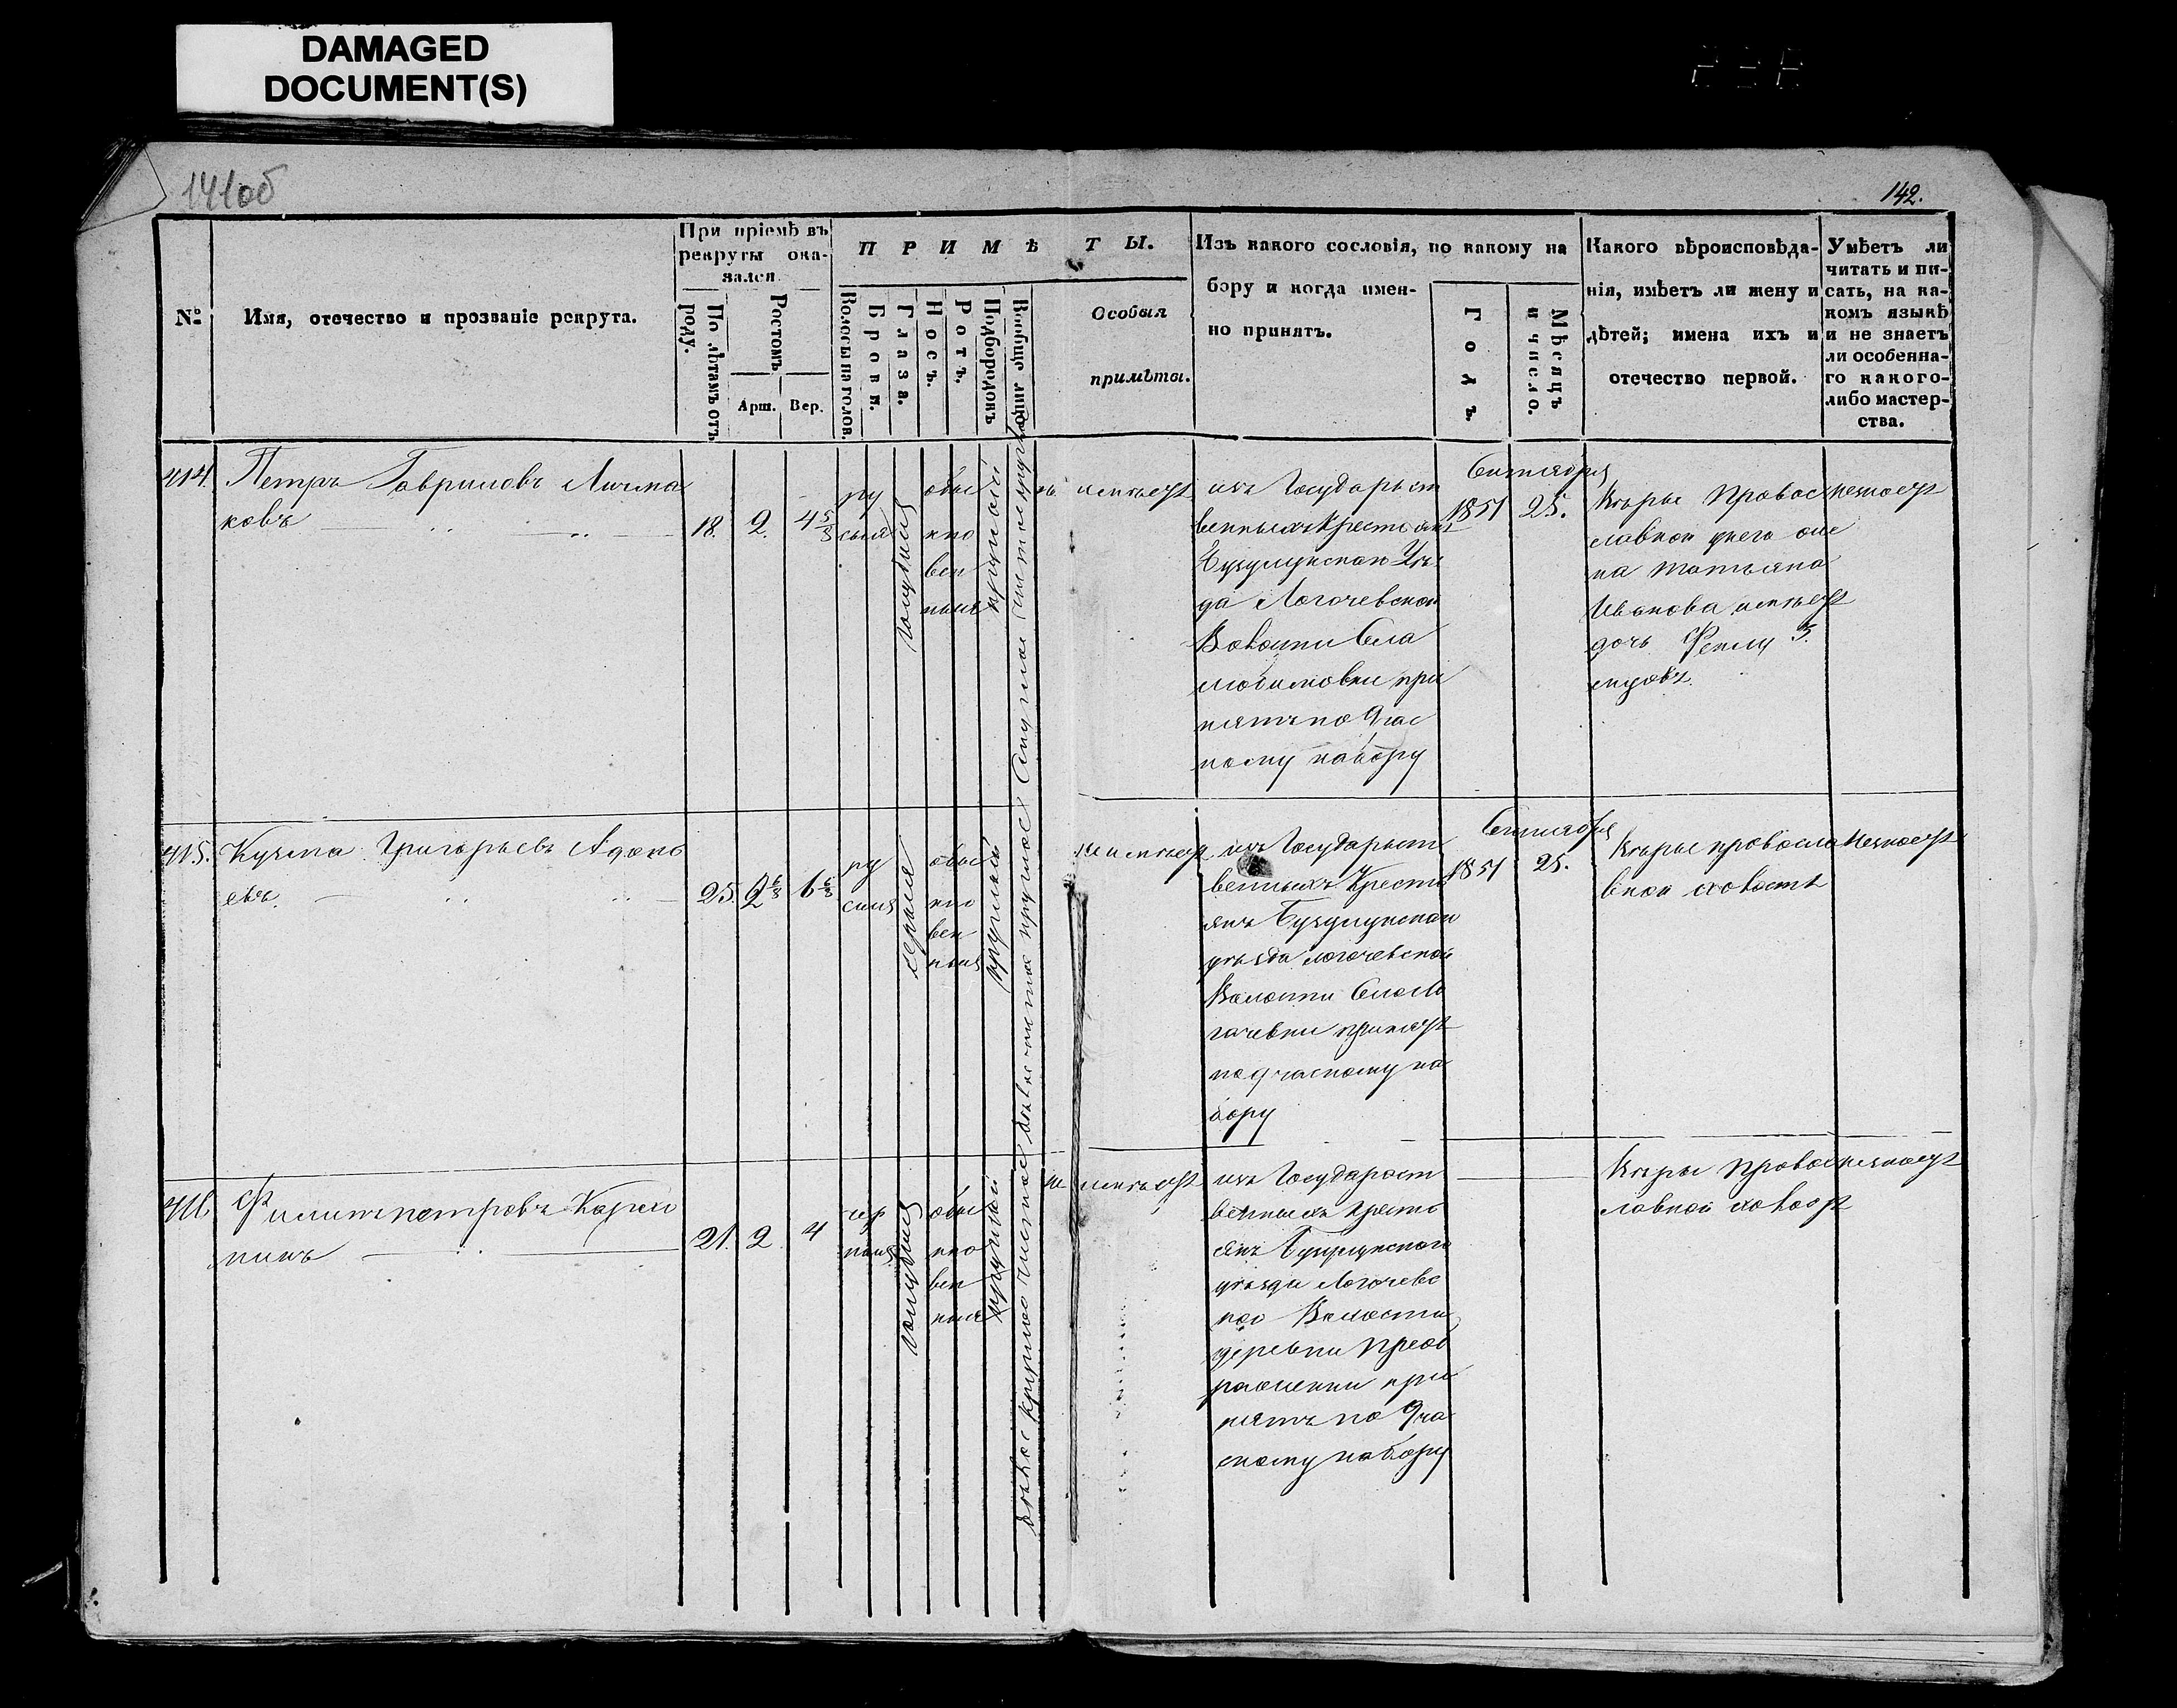 DAMAGED
DOCUMENT(S)
141об
142.
№
Имя, отечество и прозваніе рекрута.
При пріемѣ въ
рекруты ока-
зался
По лѣтамъ отъ
роду.
Ростомъ
Арш. Вер.
ПРИМѢТЫ.
Волосы на головѣ.
Брови.
Глаза.
Носъ.
Ротъ.
Подбородокъ
Вообще лице
Особыя
примѣты.
Изъ какого сословія, по какому на
бору и когда имен-
но принятъ.
Годъ
Мѣсяцъ
и число.
Какого вѣроисповѣда-
нія, имѣетъ ли жену и
дѣтей; имена ихъ и
отечество первой.
Умѣетъ ли
читать и пи-
сать, на ка-
комъ языкѣ
и не знаетъ
ли особенна-
го какого-
либо мастер-
ства.
414.
Петръ Гавриловъ
ковъ
18. 2. 4 5/8
ру
сыя
голубыя
обык
но
вен
ныя
круглой
неимѣетъ
изъ Государьст
венныхъ Крестьянъ
Бузулукскаго Уѣз
да Логачевской
Волости Села
при
нятъ по 9 час
ному набору
Сентября
1851 25.
Вѣры Правос
лавной унего же
на Татьяна
Иванова имѣетъ
дочь Феклу 3.
годовъ.
незнаетъ
415.
Кузма Григорьевъ
евъ.
25. 2 6/8 6 6/8
ру
сыя
серыя
обык
но
вен
ныя
круглой
неимѣетъ
изъ Государьст
венныхъ Кресть
янъ Бузулукскаго
уѣзда Логачевской
Волости Села Ло
гачевки принятъ
по 9 часному на
бору
Сентября
1851 25.
Вѣры правосла
вной холостъ
незнаетъ
416
Филипъ петровъ
нинъ
21. 2 4
чер
ныя
голубыя
обык
но
вен
ныя
круглой
неимѣетъ
изъ Государст
венныхъ кресть
янъ Бузулукскаго
уѣзда Логачевс
кой Волости
деревни Преоб
раженки при
нятъ по 9 ча
сному набору
Вѣры Правос
лавной холостъ
незнаетъ